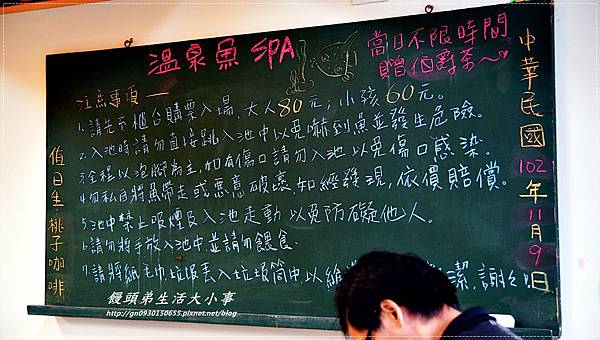 溫泉魚SPA
當日不限時間
贈伯爵茶～
注意事項
1.請先至櫃台購票入場,大人80元;小孩60元。
2.入池時請勿直接跳入池中以免嚇到魚並發生危險。
3.全程以泡腳為主,如有傷口請勿入池以免傷口感染。
4.勿私自將魚帶走或惡意破壞,如經發現,依價賠償。
5.池中禁止吸煙及入池走動以免防礙他人。
6.請勿將手放入池中並請勿餵食.
7.請將紙毛巾垃圾丟入垃圾筒中,以維 潔,謝謝
中華民國102年11月9日
值日生:桃子咖啡
饅頭弟生活大小事
http://gn0930150655.pixnet.net/blog